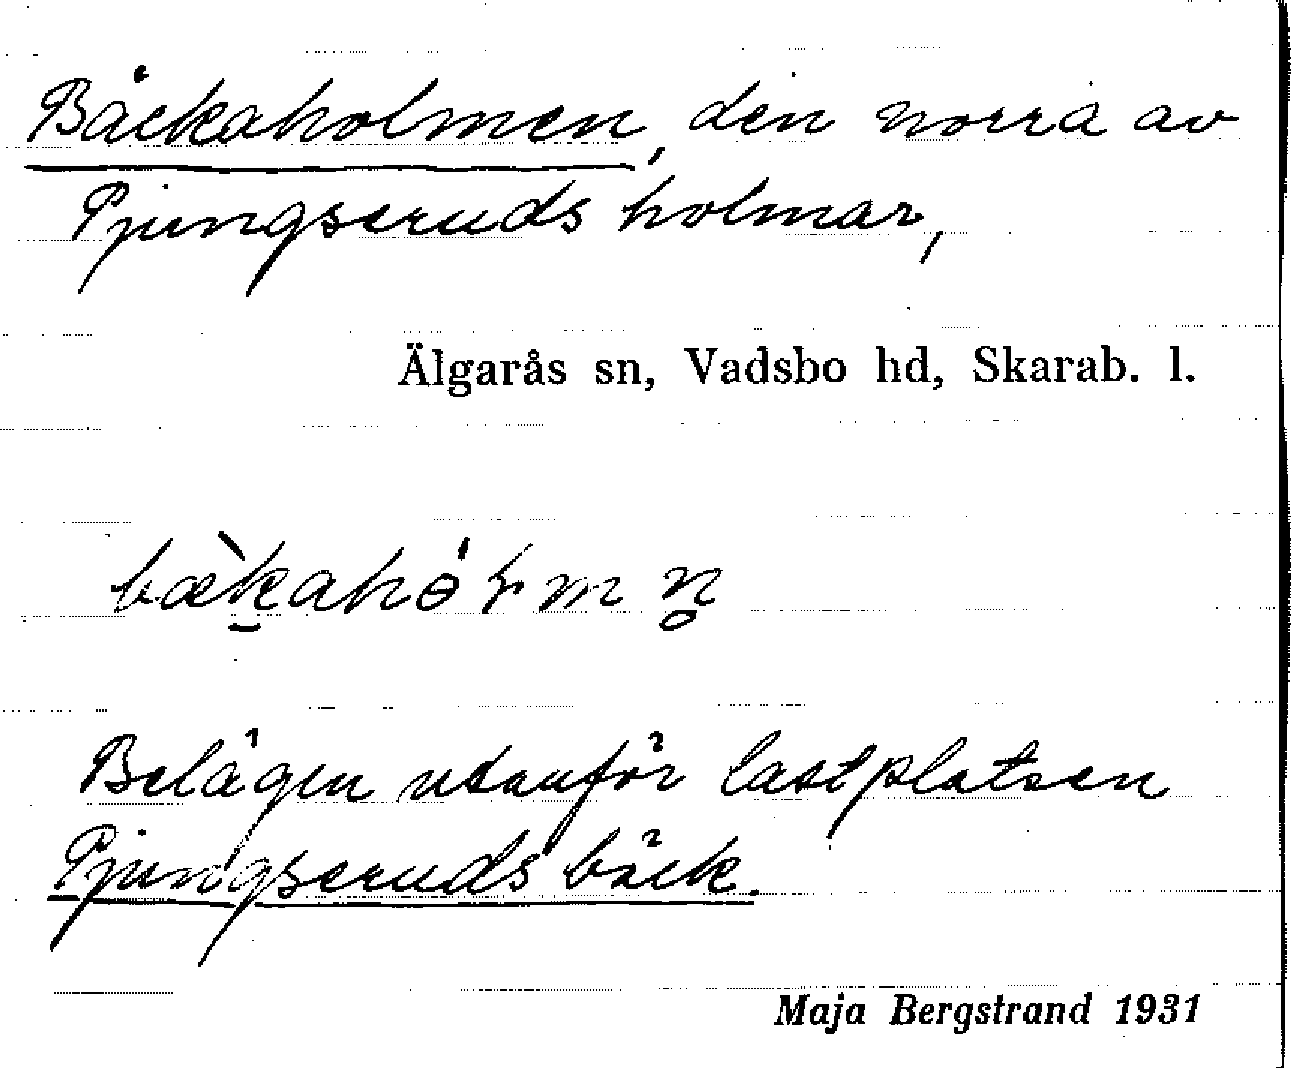 Bäckaholmen, den norra av
Pjungseruds holmar,
Älgarås sn, Vadsbo hd, Skarab. l.
Belägen utanför lastplatsen
Pjungseruds bäck.
Maja Bergstrand 1931